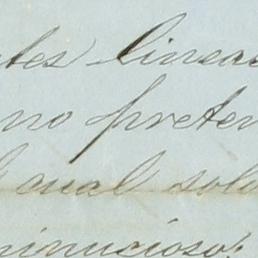 ntes lineas
no preten
l cual solo
minucioso;